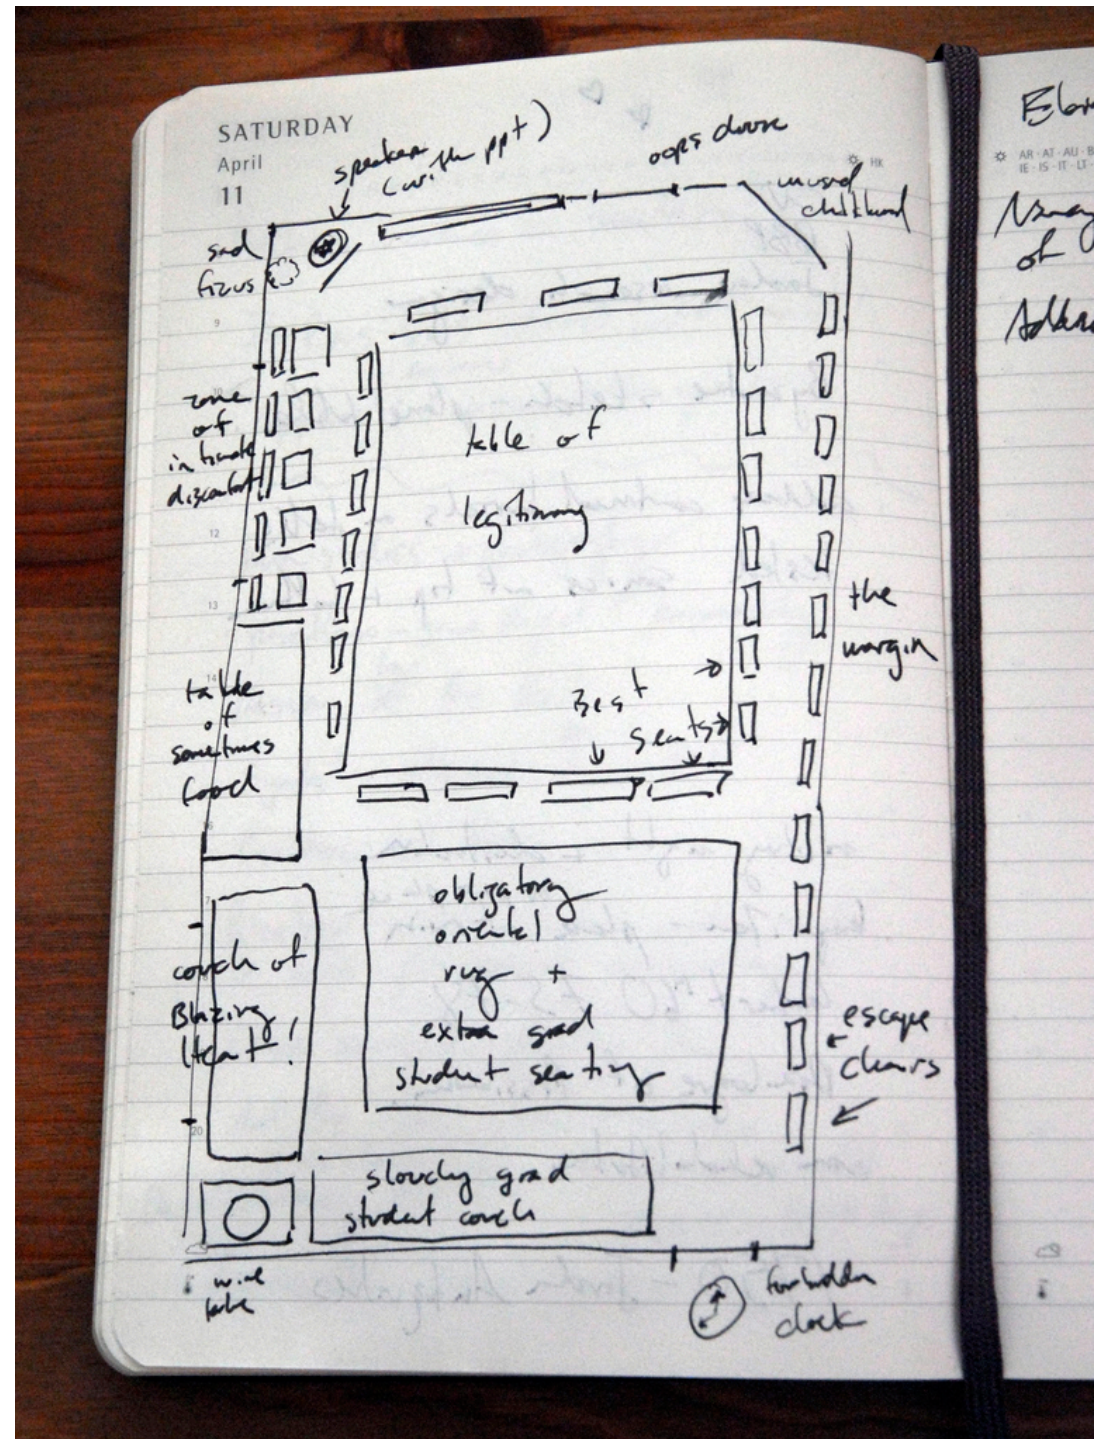 SATURDAY
April
11
speaker
(with ppt)
oops doors
HK
unused
chalkboard
sad
ficus
9
zone
of
intimate
discomfort
12
13
table of
legitimacy
the
margin
Best
seats
table
of
sometimes
food
obligatory
oriental
rug +
extra grad
student seating
couch of
Blazing
Heat!
escape
chairs
20
slouchy grad
student couch
wine
table
forbidden
clock
AR · AT · AU · B
IE · IS · IT · LT ·
of